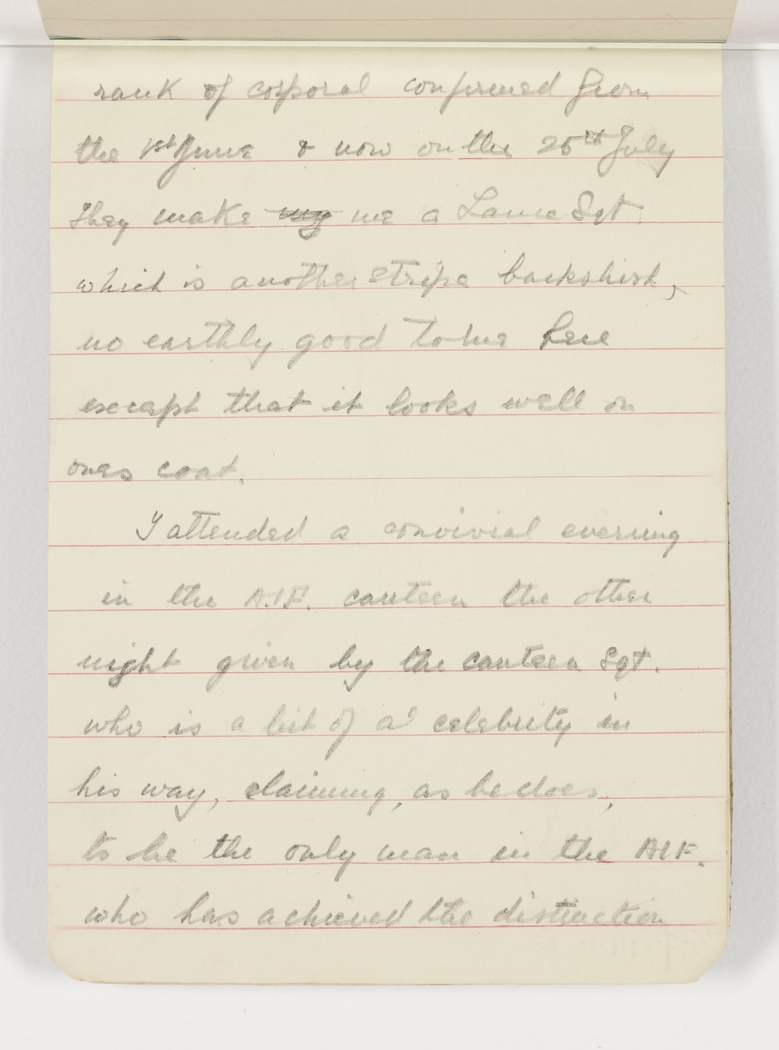 rank of corporal confirmed from
the 1st June & now on the 25th July
they make my me a Lance Sgt
which is another stripe backshish,
no earthly good to me here
except that it looks well on
ones coat.
I attended a convivial evening
in the A.I.F. canteen the other
night given by the canteen Sgt.
who is a bit of a celebrity in
his way, claiming, as he does,
to be the only man in the AIF.
who has achieved the distinction